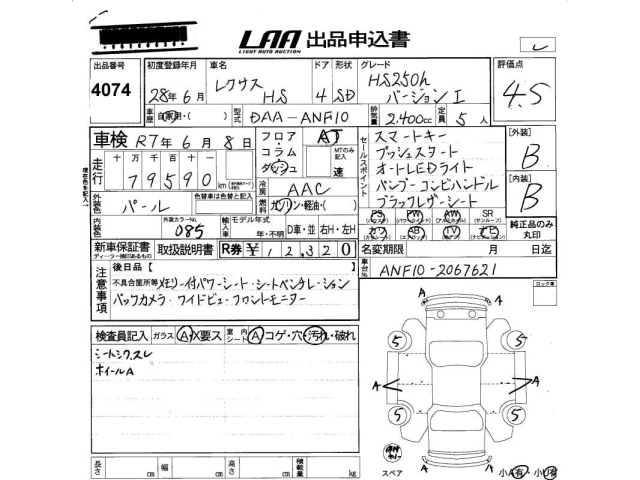 LAA 出品申込書
LIGHT AUTO AUCTION
出品番号 4074
初度登録年月 28年6月
車名 レクサス HS
ドア 4 形状 SD
グレード HS250h バージョンI
評価点 4.5
車歴 自家用・( )
型式 DAA-ANF10
排気量 2,400cc 定員 5人
車検 R7年6月8日
走行 十万 万 千 百 十
79590 km
フロア・コラム・ダッシュ
AT
MTのみ記入 速
冷房 AAC
燃料 ガソリン・軽油・( )
外装色 パール
色替車は色替と記入
内装色
外装カラーNo. 085
輸入車 モデル年式 年・不明 D車・並 右H・左H
セールスポイント
スマートキー
プッシュスタート
オートLEDライト
バンブーコンビハンドル
ブラックレザーシート
PS PW AW SR
カワ AB TV ナビ
[外装] B
[内装] B
純正品のみ丸印
新車保証書
ディーラー捺印あるもの
取扱説明書
R券 ¥12,320
名変期限 月 日迄
車台No. ANF10-2067621
注意事項
後日品[ ]
不具合箇所等 メモリー付パワーシート・シートベンチレーション
バックカメラ・ワイドビューフロントモニター
ロック車
検査員記入 ガラス A・X要ス 室内シート A コゲ・穴・汚れ・破れ
シートシワスレ
ホイールA
A A
5 5
A A
5 5
A A
スペア
小A有・小U有
長さ cm 幅 cm 高さ cm 積載量 kg